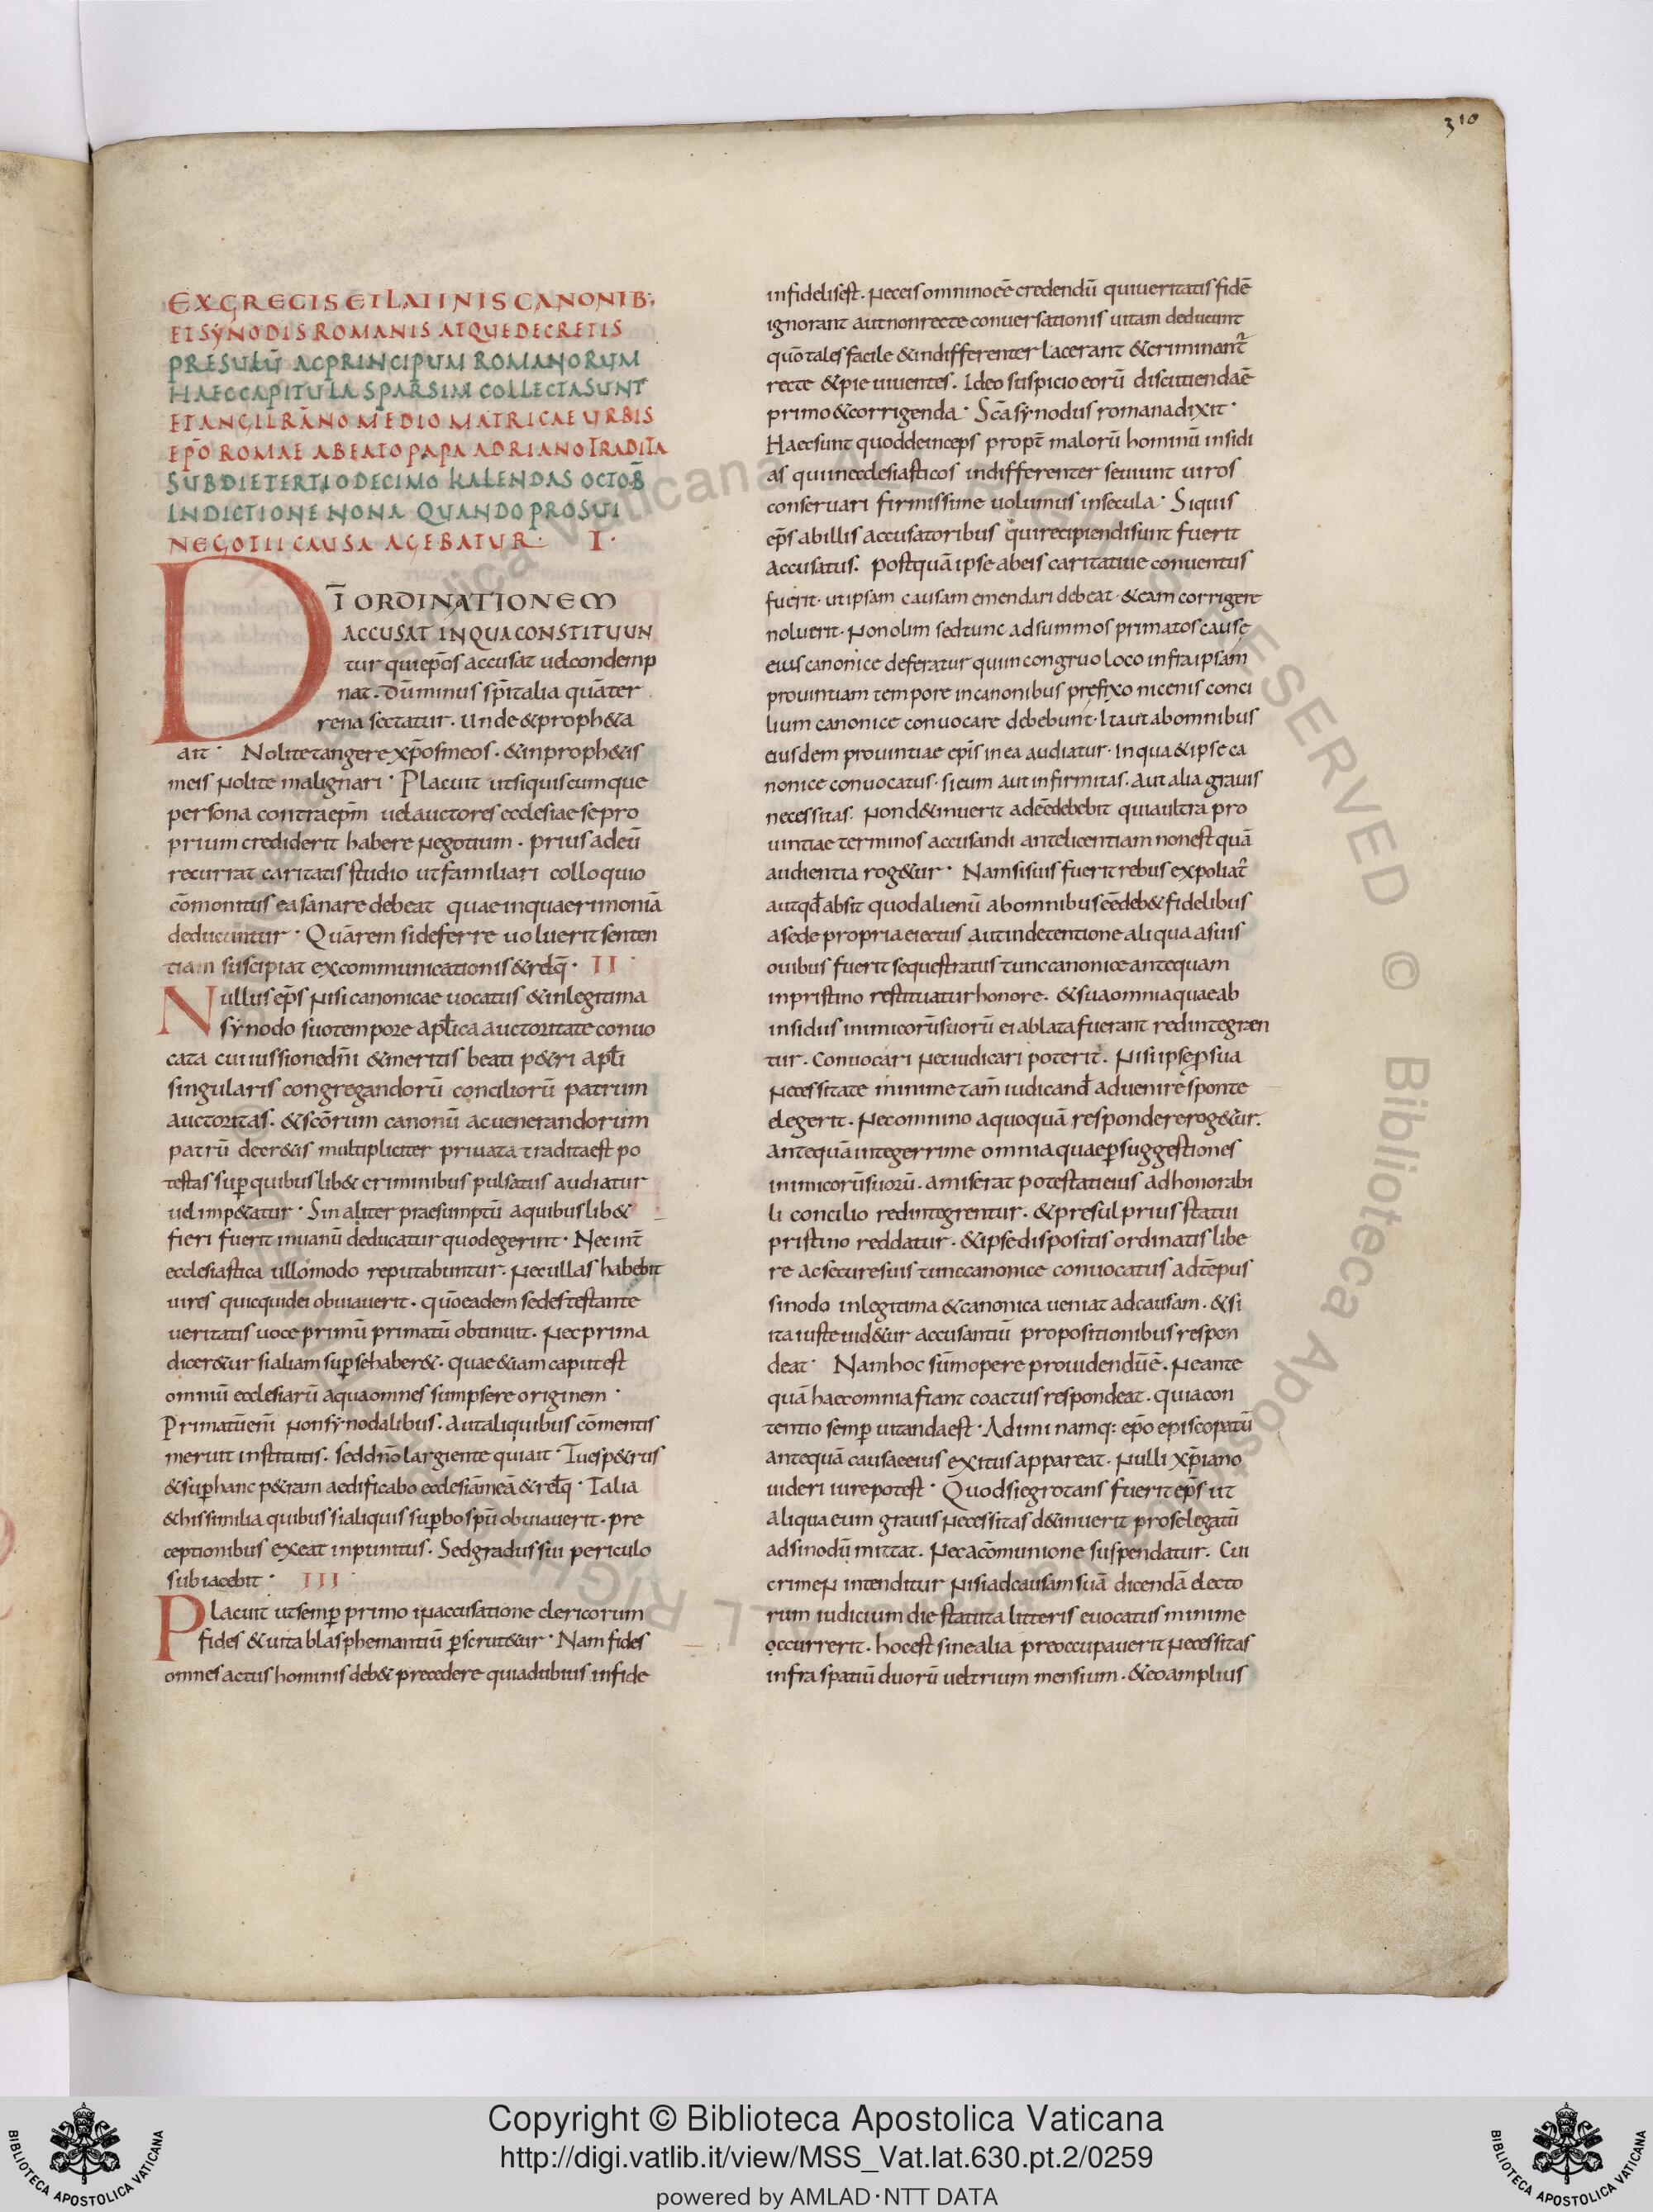 310
EX GRECIS ET LATINIS CANONIB;
ET SYNODIS ROMANIS ATQUE DECRETIS
PRESULŪ AC PRINCIPUM ROMANORUM
HAEC CAPITULA SPARSIM COLLECTA SUNT
ET ANGILRĀNO MEDIOMATRICAE URBIS
EPŌ ROMAE A BEATO PAPA ADRIANO TRADITA
SUB DIE TERTIO DECIMO KALENDAS OCTOB̄
INDICTIONE NONA QUANDO PRO SUI
NEGOTII CAUSA AGEBATUR· I·
DĪ ORDINATIONEM
ACCUSAT IN QUA CONSTITUUN
tur qui ep̄os accusat uel condemp
nat. Dū minus sp̄italia quā ter
rena sectatur. Unde & proph&a
ait· Nolite tangere xp̄os meos. & in proph&is
meis nolite malignari· Placuit ut si quiscumque
persona contra ep̄m uel auctores ecclesiae se pro
prium crediderit habere negotium. prius ad eū
recurrat caritatis studio ut familiari colloquio
cōmonitus ea sanare debeat quae in quaerimoniā
deducuntur· Quā rem si deferre uoluerit senten
tiam suscipiat excommunicationis & relq̄· II·
Nullus ep̄s nisi canonicae uocatus & in legitima
synodo suo tempore apl̄ica auctoritate conuo
cata cui iussione dn̄i & meritis beati p&ri apl̄i
singularis congregandorū conciliorū patrum
auctoritas. & scōrum canonū ac uenerandorum
patrū decr&is multipliciter priuata tradita est po
testas sup quibuslib& criminibus pulsatus audiatur
uel imp&atur· Sin aliter praesumptū a quibuslib&
fieri fuerit in uanū deducatur quod egerint· Nec int̄
ecclesiastica ullo modo reputabuntur. Nec ullas habebit
uires quicquid ei obuiauerit. quō eadem sedes testante
ueritatis uoce primū primatū obtinuit. Nec prima
dicer&ur si aliam sup se haber&. quae & iam caput est
omniū ecclesiarū a qua omnes sumpsere originem·
Primatū eni̅ non synodalibus. aut aliquibus cōmentis
meruit institutis. sed dn̄o largiente qui ait· Tu es p&rus
& sup hanc p&ram aedificabo ecclesiā meā & relq̄· Talia
& his similia quibus si aliquis supbo spū obuiauerit. pre
ceptionibus exeat inpunitus. Sed gradus sui periculo
subiacebit· III·
Placuit ut semp primo in accusatione clericorum
fides & uita blasphemantiū pscrut&ur· Nam fides
omnes actus hominis deb& precedere quia dubius in fide
infidelis est. Nec eis omnino ēe credendū qui ueritatis fidē
ignorant aut non recte conuersationis uitam ducunt
quō tales facile & indifferenter lacerant & criminant̄
recte & pie uiuentes. Ideo suspicio eorū discutienda ē
primo & corrigenda· Scā synodus romana dixit·
Haec sunt quod deinceps propt̄ malorū hominū insidi
as qui in ecclesiasticos indifferenter seuiunt uiros
conseruari firmissime uolumus in secula· Si quis
ep̄s ab illis accusatoribus qui recipiendi sunt fuerit
accusatus. postquā ipse ab eis caritatiue conuentus
fuerit. ut ipsam causam emendari debeat. & eam corrigere
noluerit. Non olim sed tunc ad summos primatos causę
eius canonice deferatur qui in congruo loco infra ipsam
prouintiam tempore in canonibus prefixo nicenis conci
lium canonice conuocare debebunt. Ita ut ab omnibus
eiusdem prouintiae epīs in ea audiatur. In qua & ipse ca
nonice conuocatus. si eum aut infirmitas. aut alia grauis
necessitas. Non d&inuerit adeē debebit quia ultra pro
uintiae terminos accusandi ante licentiam non est quā
audientia rog&ur· Nam si suis fuerit rebus expoliat̄
aut qd̄ absit quod alienū ab omnibus ēe deb& fidelibus
a sede propria eiectus aut in detentione aliqua a suis
ouibus fuerit sequestratus tunc canonice antequam
in pristino restituatur honore. & sua omnia quae ab
insidiis inimicorū suorū ei ablata fuerant redintegren
tur. Conuocari nec iudicari poterit. Nisi ipse p sua
necessitate minime tam̄ iudicand̄ aduenire sponte
elegerit. Nec omnino a quoquā respondere rog&ur.
antequā integerrime omnia quae p suggestiones
inimicorū suorū. amiserat potestati eius ad honorabi
li concilio redintegrentur. & presul prius statui
pristino reddatur. & ipse dispositis ordinatis libe
re ac secure suis tunc canonice conuocatus ad tēpus
sinodo in legitima & canonica ueniat ad causam. & si
ita iuste uid&ur accusantiū propositionibus respon
deat· Nam hoc sūmopere prouidendū ē. Ne ante
quā haec omnia fiant coactus respondeat. quia con
tentio semp uitanda est· Adimi namq: ep̄o episcopatū
antequā causae eius exitus appareat. Nulli xp̄iano
uideri iure potest· Quod si egrotans fuerit ep̄s ut
aliqua eum grauis necessitas d&inuerit pro se legatū
ad sinodū mittat. Nec a cōmunione suspendatur. Cui
crimen intenditur nisi ad causam suā dicendā electo
rum iudicium die statuta litteris euocatus minime
occurrerit. hoc est sine alia preoccupauerit necessitas
infra spatiū duorū uel trium mensium. & eo amplius
Copyright © Biblioteca Apostolica Vaticana
http://digi.vatlib.it/view/MSS_Vat.lat.630.pt.2/0259
powered by AMLAD·NTT DATA
BIBLIOTECA APOSTOLICA VATICANA
BIBLIOTECA APOSTOLICA VATICANA